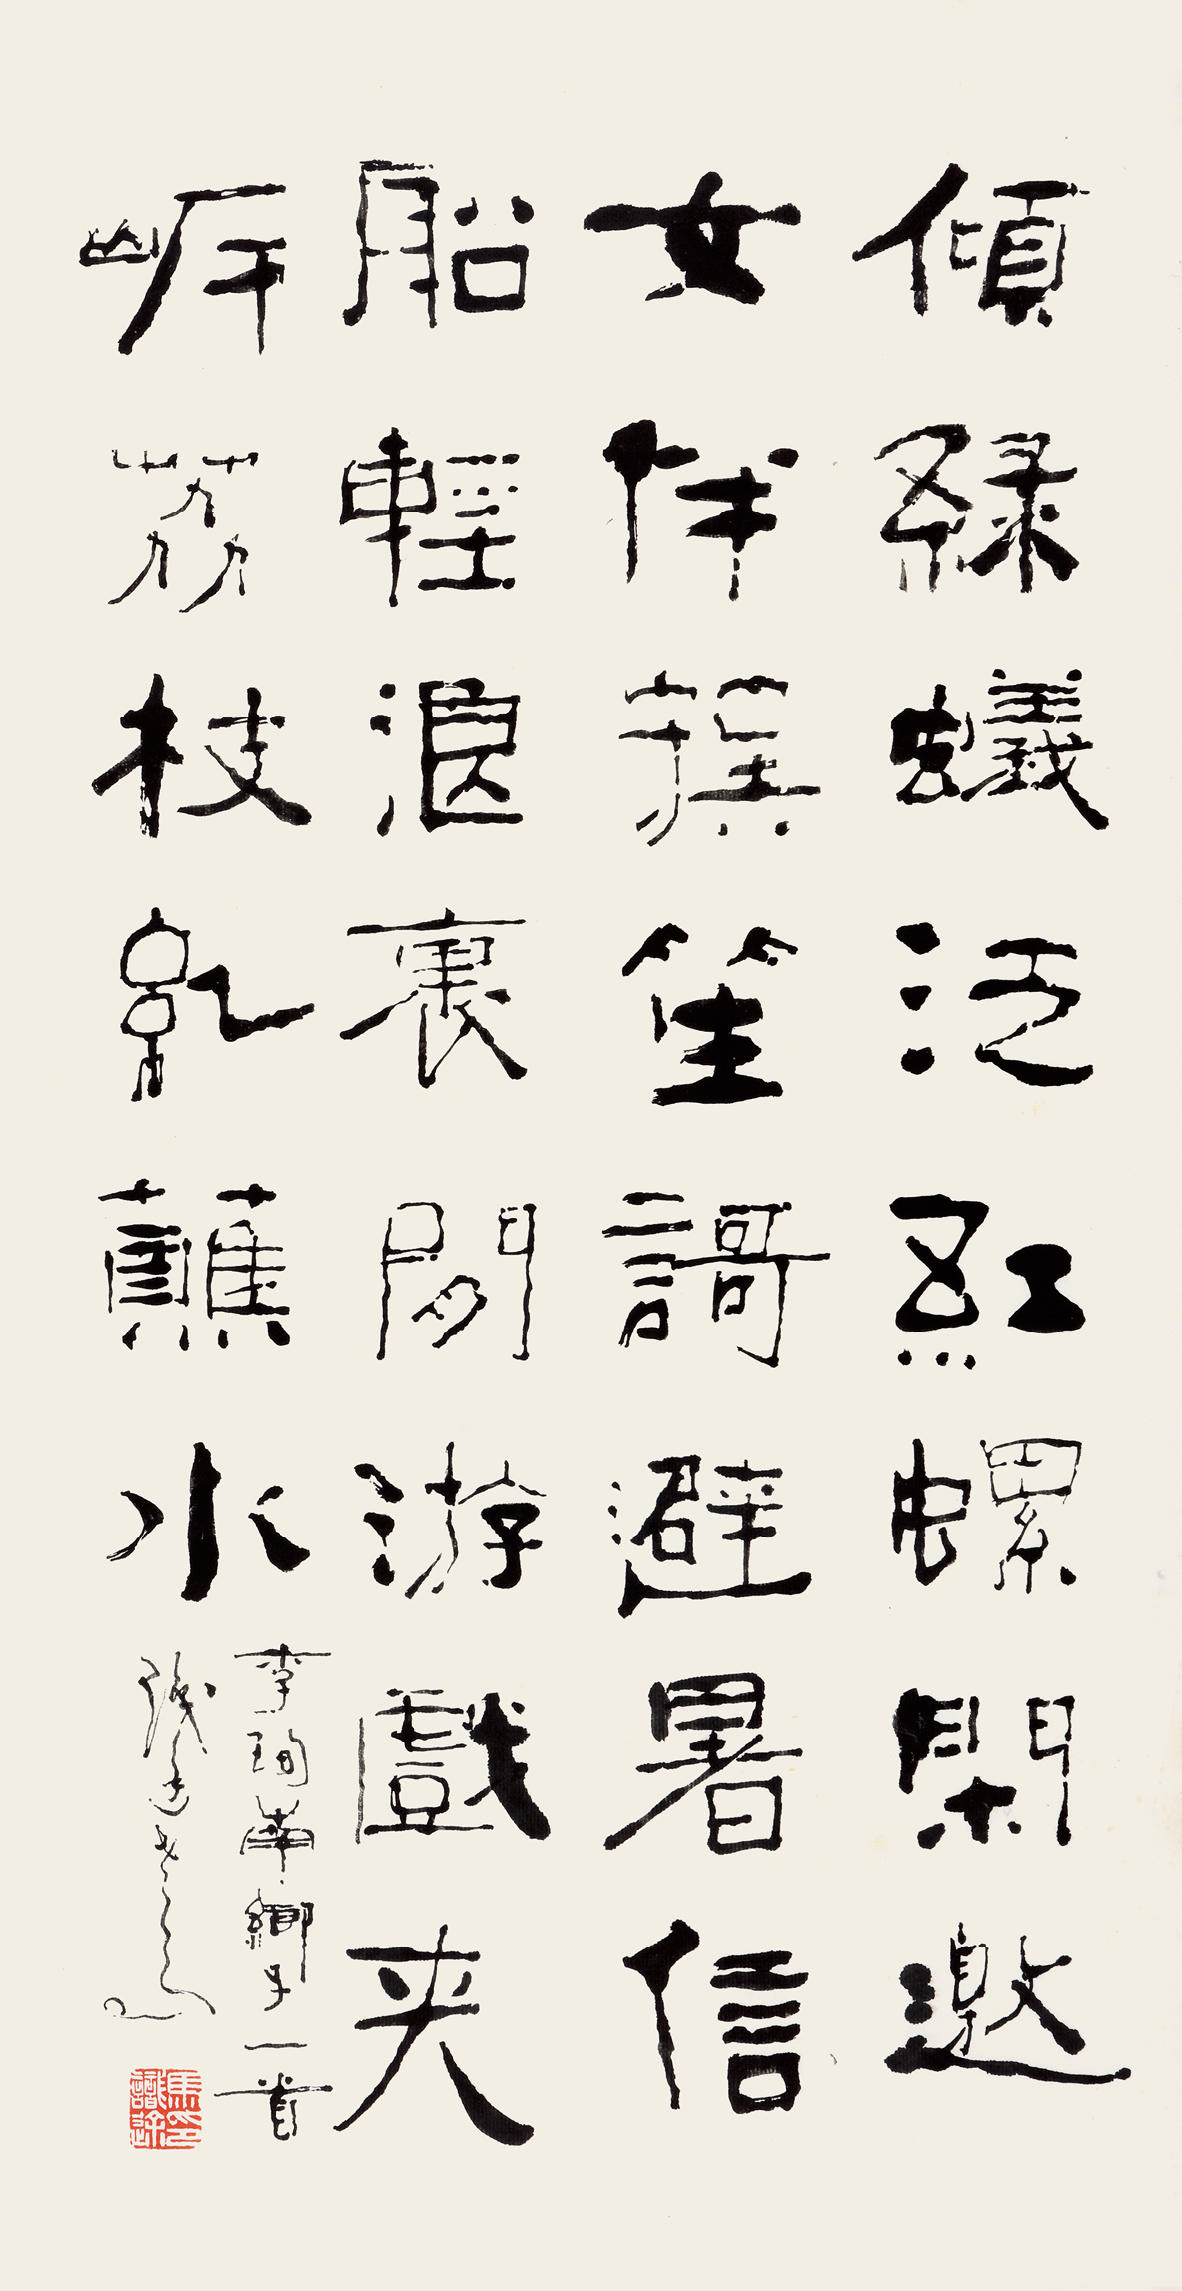 傾綠蟻泛紅螺閑邀
女伴蔟笙謌避暑信
船輕浪裏閒游戲夾
岸荔枝紅蘸水
李珣南鄉子一首